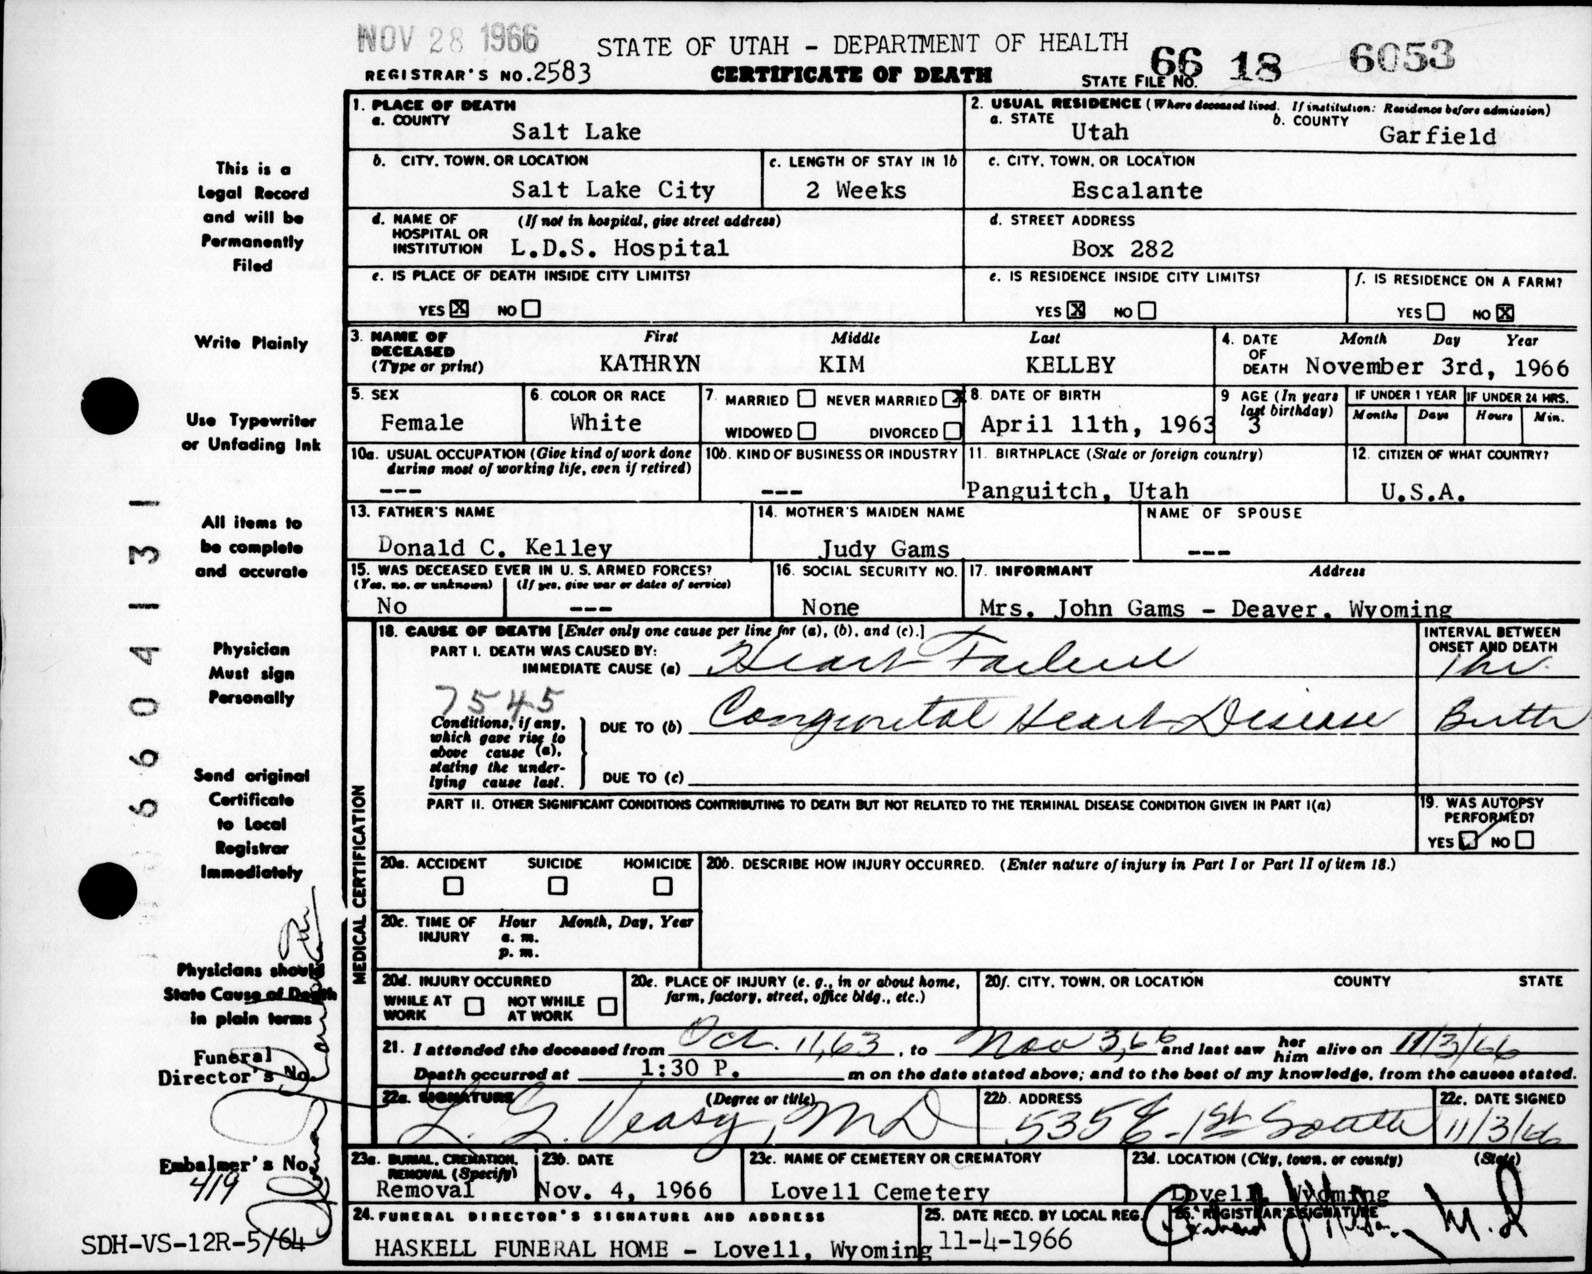 NOV 28 1966
STATE OF UTAH - DEPARTMENT OF HEALTH
66 18 6053
REGISTRAR'S NO. 2583
CERTIFICATE OF DEATH
STATE FILE NO.
1. PLACE OF DEATH
a. COUNTY
Salt Lake
2. USUAL RESIDENCE (Where deceased lived. If institution: Residence before admission)
a. STATE
Utah
b. COUNTY
Garfield
b. CITY, TOWN, OR LOCATION
Salt Lake City
c. LENGTH OF STAY IN 1b
2 Weeks
c. CITY, TOWN, OR LOCATION
Escalante
d. NAME OF HOSPITAL OR INSTITUTION
(If not in hospital, give street address)
L.D.S. Hospital
d. STREET ADDRESS
Box 282
e. IS PLACE OF DEATH INSIDE CITY LIMITS?
YES X NO
e. IS RESIDENCE INSIDE CITY LIMITS?
YES X NO
f. IS RESIDENCE ON A FARM?
YES NO X
3. NAME OF DECEASED (Type or print)
First Middle Last
KATHRYN KIM KELLEY
4. DATE OF DEATH
Month Day Year
November 3rd, 1966
5. SEX
Female
6. COLOR OR RACE
White
7. MARRIED NEVER MARRIED X
WIDOWED DIVORCED
8. DATE OF BIRTH
April 11th, 1963
9 AGE (In years last birthday)
3
IF UNDER 1 YEAR
Months Days
IF UNDER 24 HRS.
Hours Min.
10a. USUAL OCCUPATION (Give kind of work done during most of working life, even if retired)
---
10b. KIND OF BUSINESS OR INDUSTRY
---
11. BIRTHPLACE (State or foreign country)
Panguitch, Utah
12. CITIZEN OF WHAT COUNTRY?
U.S.A.
13. FATHER'S NAME
Donald C. Kelley
14. MOTHER'S MAIDEN NAME
Judy Gams
NAME OF SPOUSE
---
15. WAS DECEASED EVER IN U. S. ARMED FORCES?
(Yes, no, or unknown) (If yes, give war or dates of service)
No ---
16. SOCIAL SECURITY NO.
None
17. INFORMANT Address
Mrs. John Gams - Deaver, Wyoming
MEDICAL CERTIFICATION
18. CAUSE OF DEATH [Enter only one cause per line for (a), (b), and (c).]
INTERVAL BETWEEN ONSET AND DEATH
PART I. DEATH WAS CAUSED BY:
IMMEDIATE CAUSE (a) Heart Failure 1 hr
7545
Conditions, if any, which gave rise to above cause (a), stating the underlying cause last.
DUE TO (b) Congenital Heart Disease Birth
DUE TO (c)
PART II. OTHER SIGNIFICANT CONDITIONS CONTRIBUTING TO DEATH BUT NOT RELATED TO THE TERMINAL DISEASE CONDITION GIVEN IN PART I(a)
19. WAS AUTOPSY PERFORMED?
YES NO
20a. ACCIDENT SUICIDE HOMICIDE
20b. DESCRIBE HOW INJURY OCCURRED. (Enter nature of injury in Part I or Part II of item 18.)
20c. TIME OF INJURY
Hour Month, Day, Year
a. m.
p. m.
20d. INJURY OCCURRED
WHILE AT WORK NOT WHILE AT WORK
20e. PLACE OF INJURY (e. g., in or about home, farm, factory, street, office bldg., etc.)
20f. CITY, TOWN, OR LOCATION COUNTY STATE
21. I attended the deceased from Oct. 11, 63, to Nov 3, 66 and last saw her him alive on 11/3/66
Death occurred at 1:30 P. m on the date stated above; and to the best of my knowledge, from the causes stated.
22a. SIGNATURE (Degree or title)
L. G. Veasy, MD
22b. ADDRESS
535 E - 1st South
22c. DATE SIGNED
11/3/66
23a. BURIAL, CREMATION, REMOVAL (Specify)
Removal
23b. DATE
Nov. 4, 1966
23c. NAME OF CEMETERY OR CREMATORY
Lovell Cemetery
23d. LOCATION (City, town, or county) (State)
Lovell Wyoming
24. FUNERAL DIRECTOR'S SIGNATURE AND ADDRESS
HASKELL FUNERAL HOME - Lovell, Wyoming
25. DATE RECD. BY LOCAL REG.
11-4-1966
26. REGISTRAR'S SIGNATURE
M.D
This is a
Legal Record
and will be
Permanently
Filed
Write Plainly
Use Typewriter
or Unfading Ink
All items to
be complete
and accurate
Physician
Must sign
Personally
Send original
Certificate
to Local
Registrar
Immediately
Physicians should
State Cause of Death
in plain terms
Funeral
Director's No.
Embalmer's No.
419
SDH-VS-12R-5/64
6604131